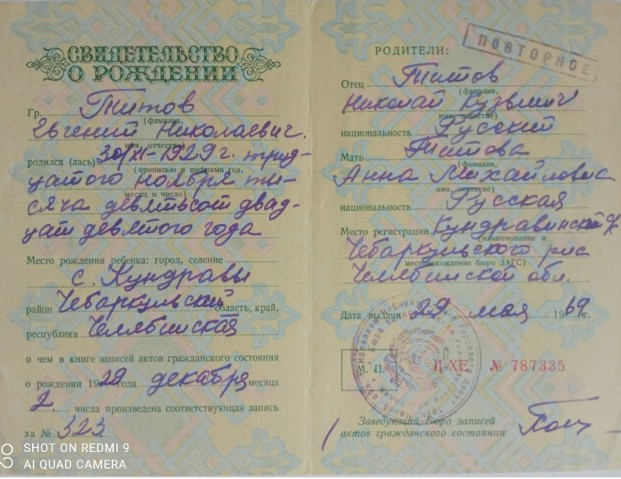 СВИДЕТЕЛЬСТВО
О РОЖДЕНИИ
Гр. Титов
(фамилия,
Евгений Николаевич.
имя, отчество)
родился (лась) 30/XI-1929 г. трид-
(прописью и цифрами год,
цатого ноября ты-
месяц и число)
сяча девятьсот двад-
цат девятого года
Место рождения ребенка: город, селение
с. Кундравы
район Чебаркульский область, край,
республика Челябинская
о чем в книге записей актов гражданского состояния
о рождении 1929 декабря месяца
2 числа произведена соответствующая запись
за № 323
SHOT ON REDMI 9
AI QUAD CAMERA
РОДИТЕЛИ:
ПОВТОРНОЕ
Отец Титов
(фамилия,
Николай Кузьмич
имя, отчество)
национальность Русский
Мать Титова
(фамилия,
Анна Михайловна
имя, отчество)
национальность Русская
Место регистрации Кундравинский
(наименование и
Чебаркульского
местонахождение бюро ЗАГС)
Челябинской обл.
Дата выдачи 29. мая 1969 г.
М. П. № 787335
Заведующий бюро записей
актов гражданского состояния